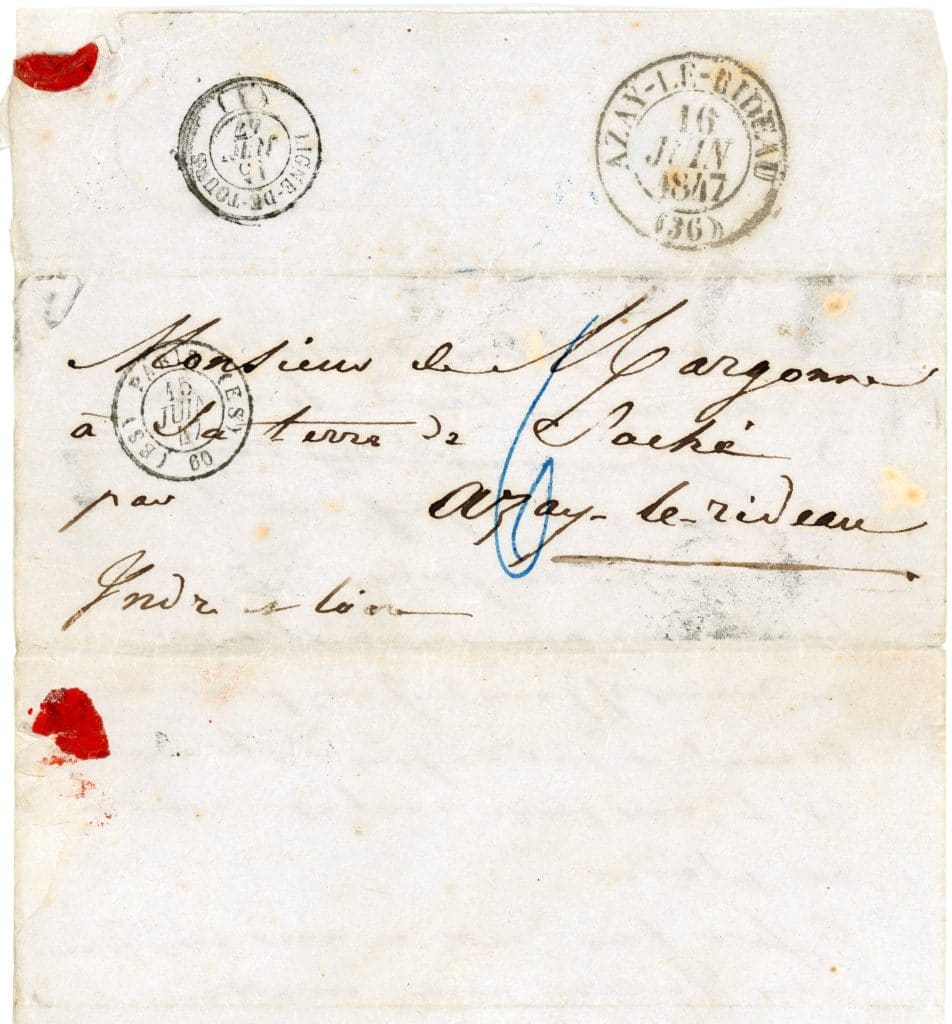 (1)
LIGNE-DE-TOURS
15
JUIN
47
AZAY-LE-RIDEAU
16
JUIN
1847
(36)
Monsieur de Margonne
à Sa terre de Saché
par azay-le-rideau
Indre & loire
6
PARIS
15
JUIN
47
60